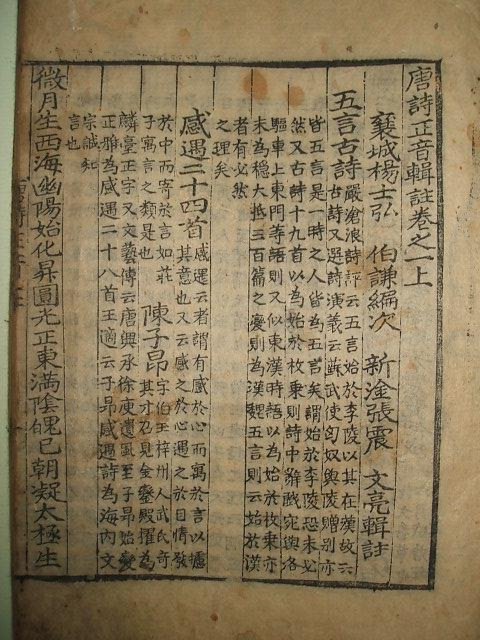 唐詩正音輯註卷之一上
襄城楊士弘 伯謙編次 新淦張震 文亮輯註
五言古詩
嚴滄浪詩評云五言始於李陵以其在漢故云
古詩又選詩演義云蘇武使匈奴與陵贈別亦
皆五言是一時之人皆為五言矣謂始於李陵恐未必
然又古詩十九首以為始於枚乗則詩中辭戲宛與洛
驅車上東門等語則又似東漢時語以為始於枚乗亦
未為穩大抵三百篇之變則為漢魏五言則云始於漢
者有必然
之理矣
感遇二十四首
感遇云者謂有感於心而寓於言以攄
其意也又云感之於心遇之於目情發
於中而寄於言如莊
子寓言之類是也
陳子昂
字伯玉梓州人武氏奇
其才召見金鑾殿擢為
麟臺正字又文藝傳云唐興承徐庾遺風至子昂始變
正雅為感遇二十八首王適云子昂感遇詩為海內文
宗誠知
言也
微月生西海幽陽始化昇圓光正東滿陰魄已朝凝太極生